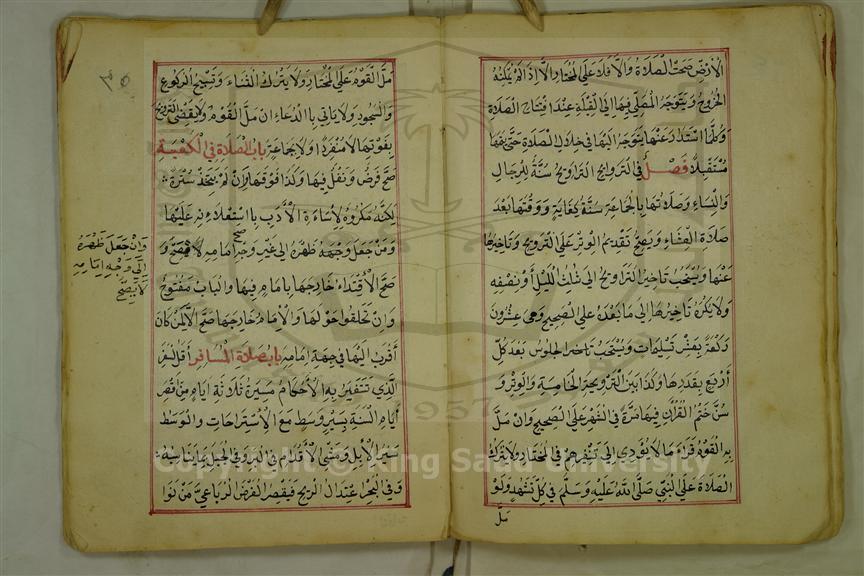 الارض صحت الصلاة والا فلا على المختار الا اذا لم يمكنه
الخروج ويتوجه المصلي فيها الى القبلة عند افتتاح الصلاة
وكلما استدارت عنها يتوجه اليها في خلال الصلاة حتى يتمها
مستقبلا فصل في التراويح التراويح سنة للرجال
والنساء وصلاتها بالجماعة سنة كفاية ووقتها بعد
صلاة العشاء ويصح تقديم الوتر على التراويح وتاخيرها
عنها ويستحب تاخير التراويح الى ثلث الليل او نصفه
ولا يكره تاخيرها الى ما بعده على الصحيح وهي عشرون
ركعة بعشر تسليمات ويستحب الجلوس بعد كل
اربع بقدرها وكذا بين الترويحة الخامسة والوتر و
سن ختم القرآن فيها مرة في الشهر على الصحيح وان مل
به القوم قراء ما لا يؤدي الى تنفيرهم في المختار ولا يترك
الصلاة على النبي صلى الله عليه وسلم في كل تشهد ولو
مل
مل القوم على المختار ولا يترك الثناء وتسبيح الركوع
والسجود ولا ياتي باالدعاء ان مل القوم ولا يقضى التراويح
بفوتها لا منفردا ولا بجماعة باب الصلاة في الكعبة
صح فرض ونفل فيها وكذا فوقها وان لم يتخذ سترة
لكنه مكروه لاساءة الأدب باستعلائه عليها
ومن جعل وجهه ظهره الى غير وجه امامه فيها صح و
صح الاقتداء خارجها بامام فيها والباب مفتوح
وان تحلقوا حولها والامام خارجها صح الا لمن كان
أقرب اليها في جهة امامه باب صلاة المسافر أقل سفر
الذي تتغير به الأحكام مسيرة ثلاثة ايام من اقصر
أيام السنة بسير وسط مع الاستراحات والوسط
سير الأبل ومشى الأقدام في البر وفي الجبل بما يناسبه
وفي البحر اعتدال الريح فيقصر الفرض الرباعي من نوا
وان جعل ظهره
الى وجه امامه
لا يصح
صح
Copyright © King Saud University
1957